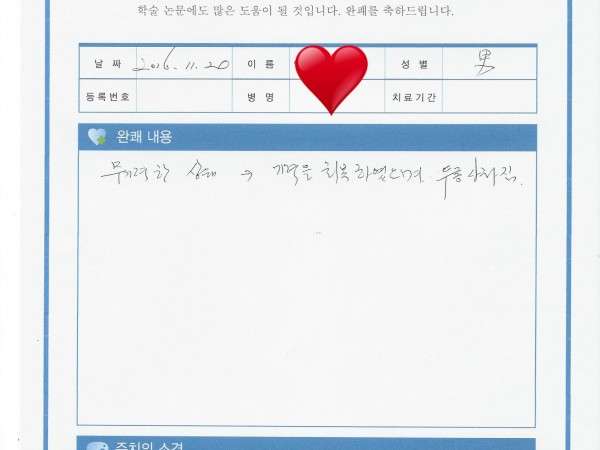 학술 논문에도 많은 도움이 될 것입니다. 완쾌를 축하드립니다.
날 짜 2016. 11. 20 이 름 성 별 男
등록번호 병 명 치료기간
완쾌 내용
무기력한 상태 → 기력을 회복하였으며 두통 사라짐.
주치의 소견